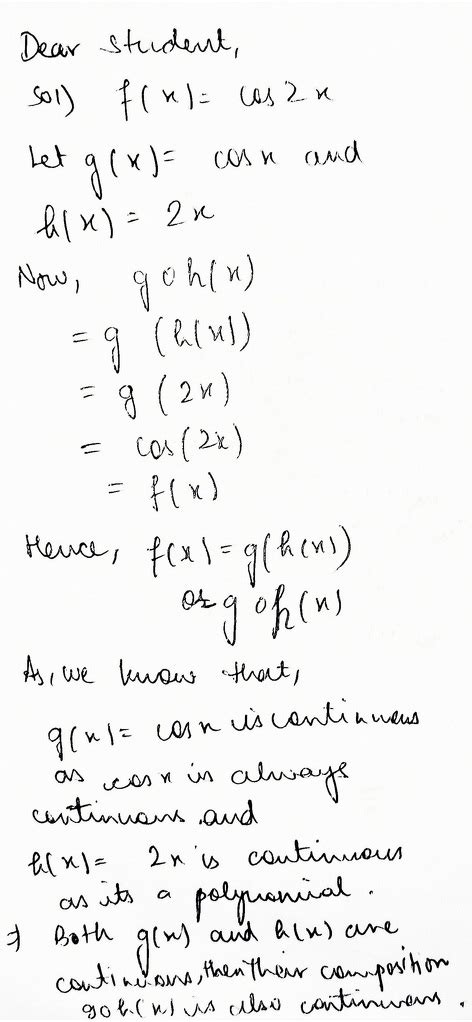 Dear student,
Sol) f(x)= cos2x
Let g(x)= cosx and
h(x)= 2x
Now, goh(x)
= g (h(x))
= g (2x)
= cos(2x)
= f(x)
Hence, f(x)=g(h(x))
or goh(x)
As, we know that,
g(x)= cosx is continuous
as cosx is always
continuous and
h(x)= 2x is continuous
as its a polynomial.
⇒ Both g(x) and h(x) are
continuous, then their composition
goh(x) is also continuous.